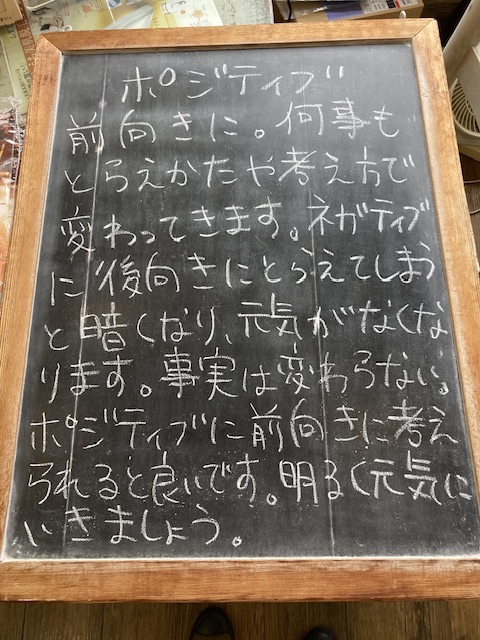 ポジティブ
前向きに。何事も
とらえかたや考え方で
変わってきます。ネガティブ
に後向きにとらえてしまう
と暗くなり、元気がなくな
ります。事実は変わらない。
ポジティブに前向きに考え
られると良いです。明るく元気に
いきましょう。